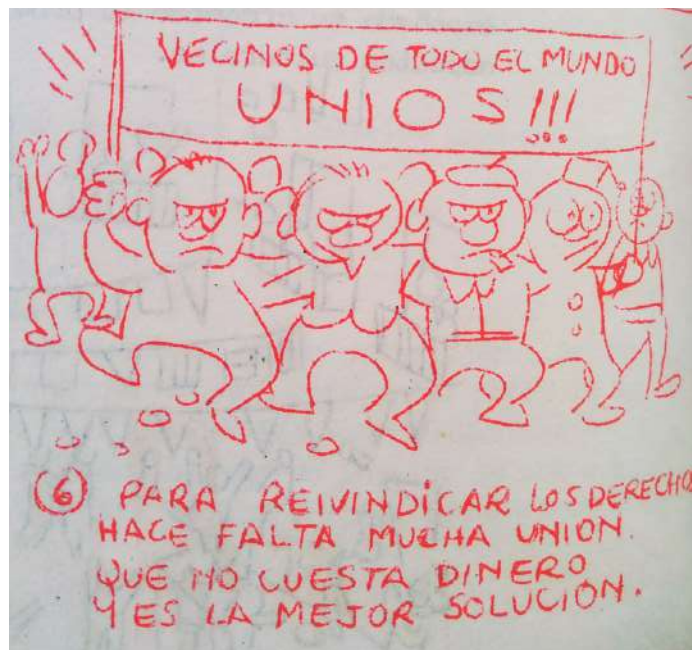 VECINOS DE TODO EL MUNDO
UNIOS!!!
6 PARA REIVINDICAR LOS DERECHOS
HACE FALTA MUCHA UNION.
QUE NO CUESTA DINERO
Y ES LA MEJOR SOLUCIÓN.